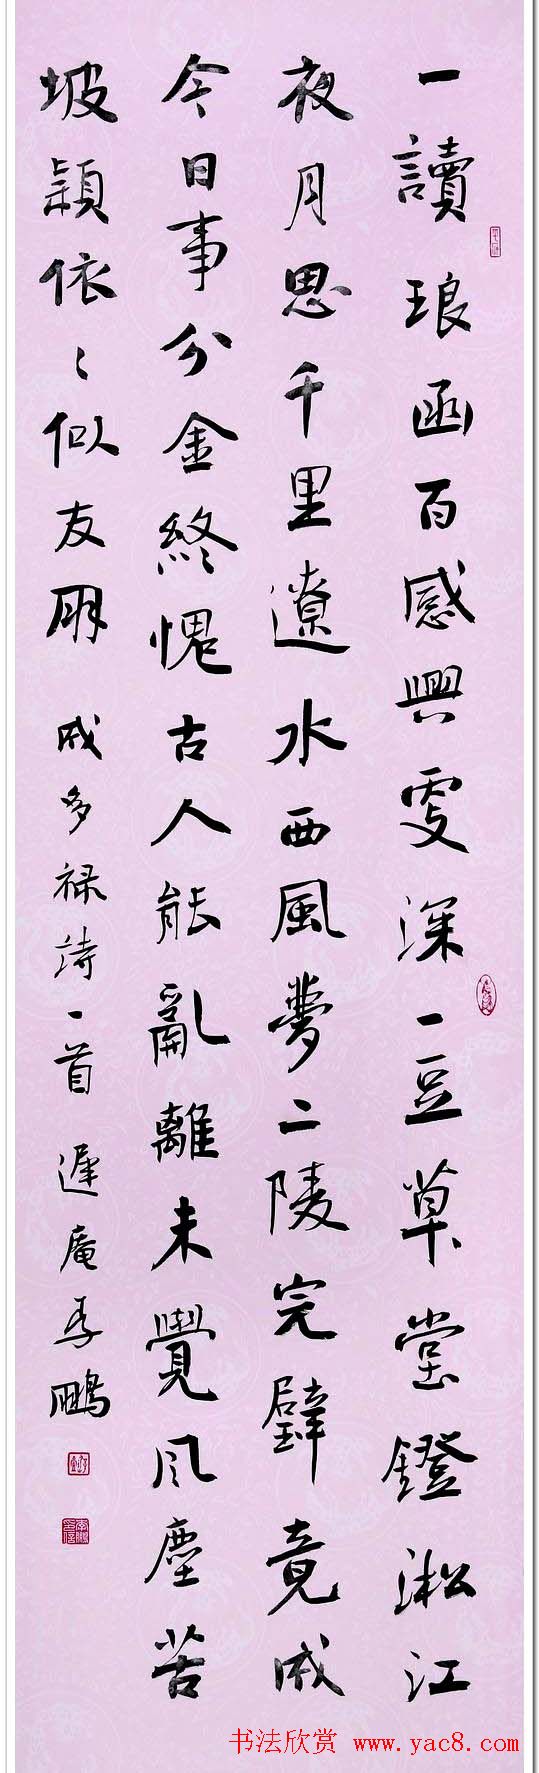 一讀琅函百感興更深一豆草堂鐙淞江
夜月思千里遼水西風夢二陵完璧竟成
今日事分金終愧古人能亂離未覺风塵苦
坡穎依〻似友朋 成多禄詩一首 遲庵李鵬
书法欣赏 www.yac8.com